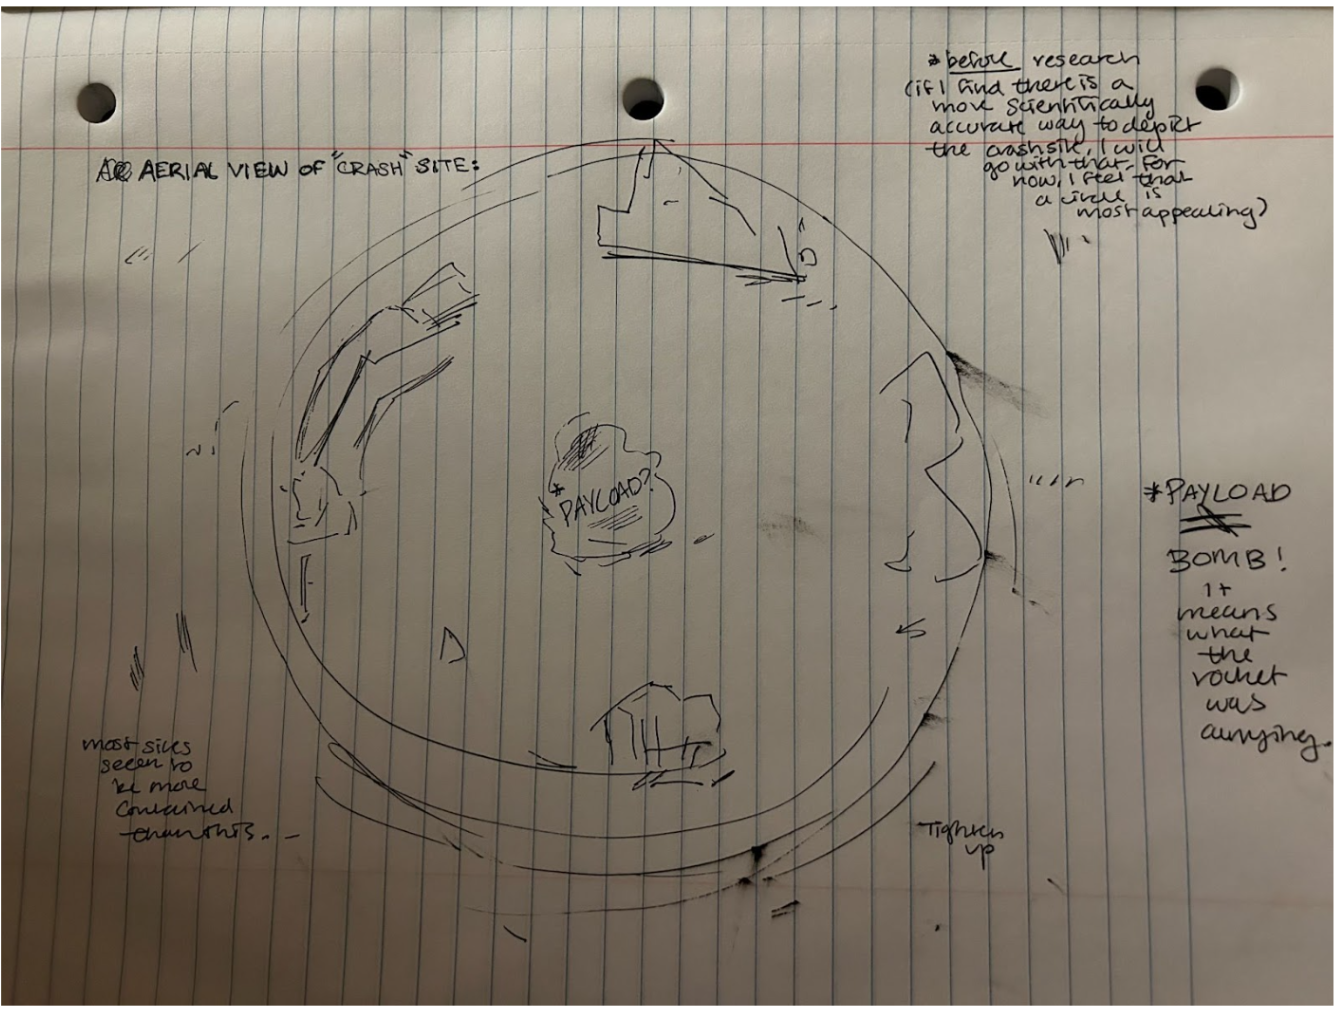 AERIAL VIEW OF "CRASH" SITE:
* before research
(if I find there is a
more scientifically
accurate way to depict
the crash site, I will
go with that. For
now, I feel that
a circle is
most appealing)
* PAYLOAD?
* PAYLOAD
BOMB!
it
means
what
the
rocket
was
carrying.
most sites
seem to
be more
contained
than this. . .
Tighten
up